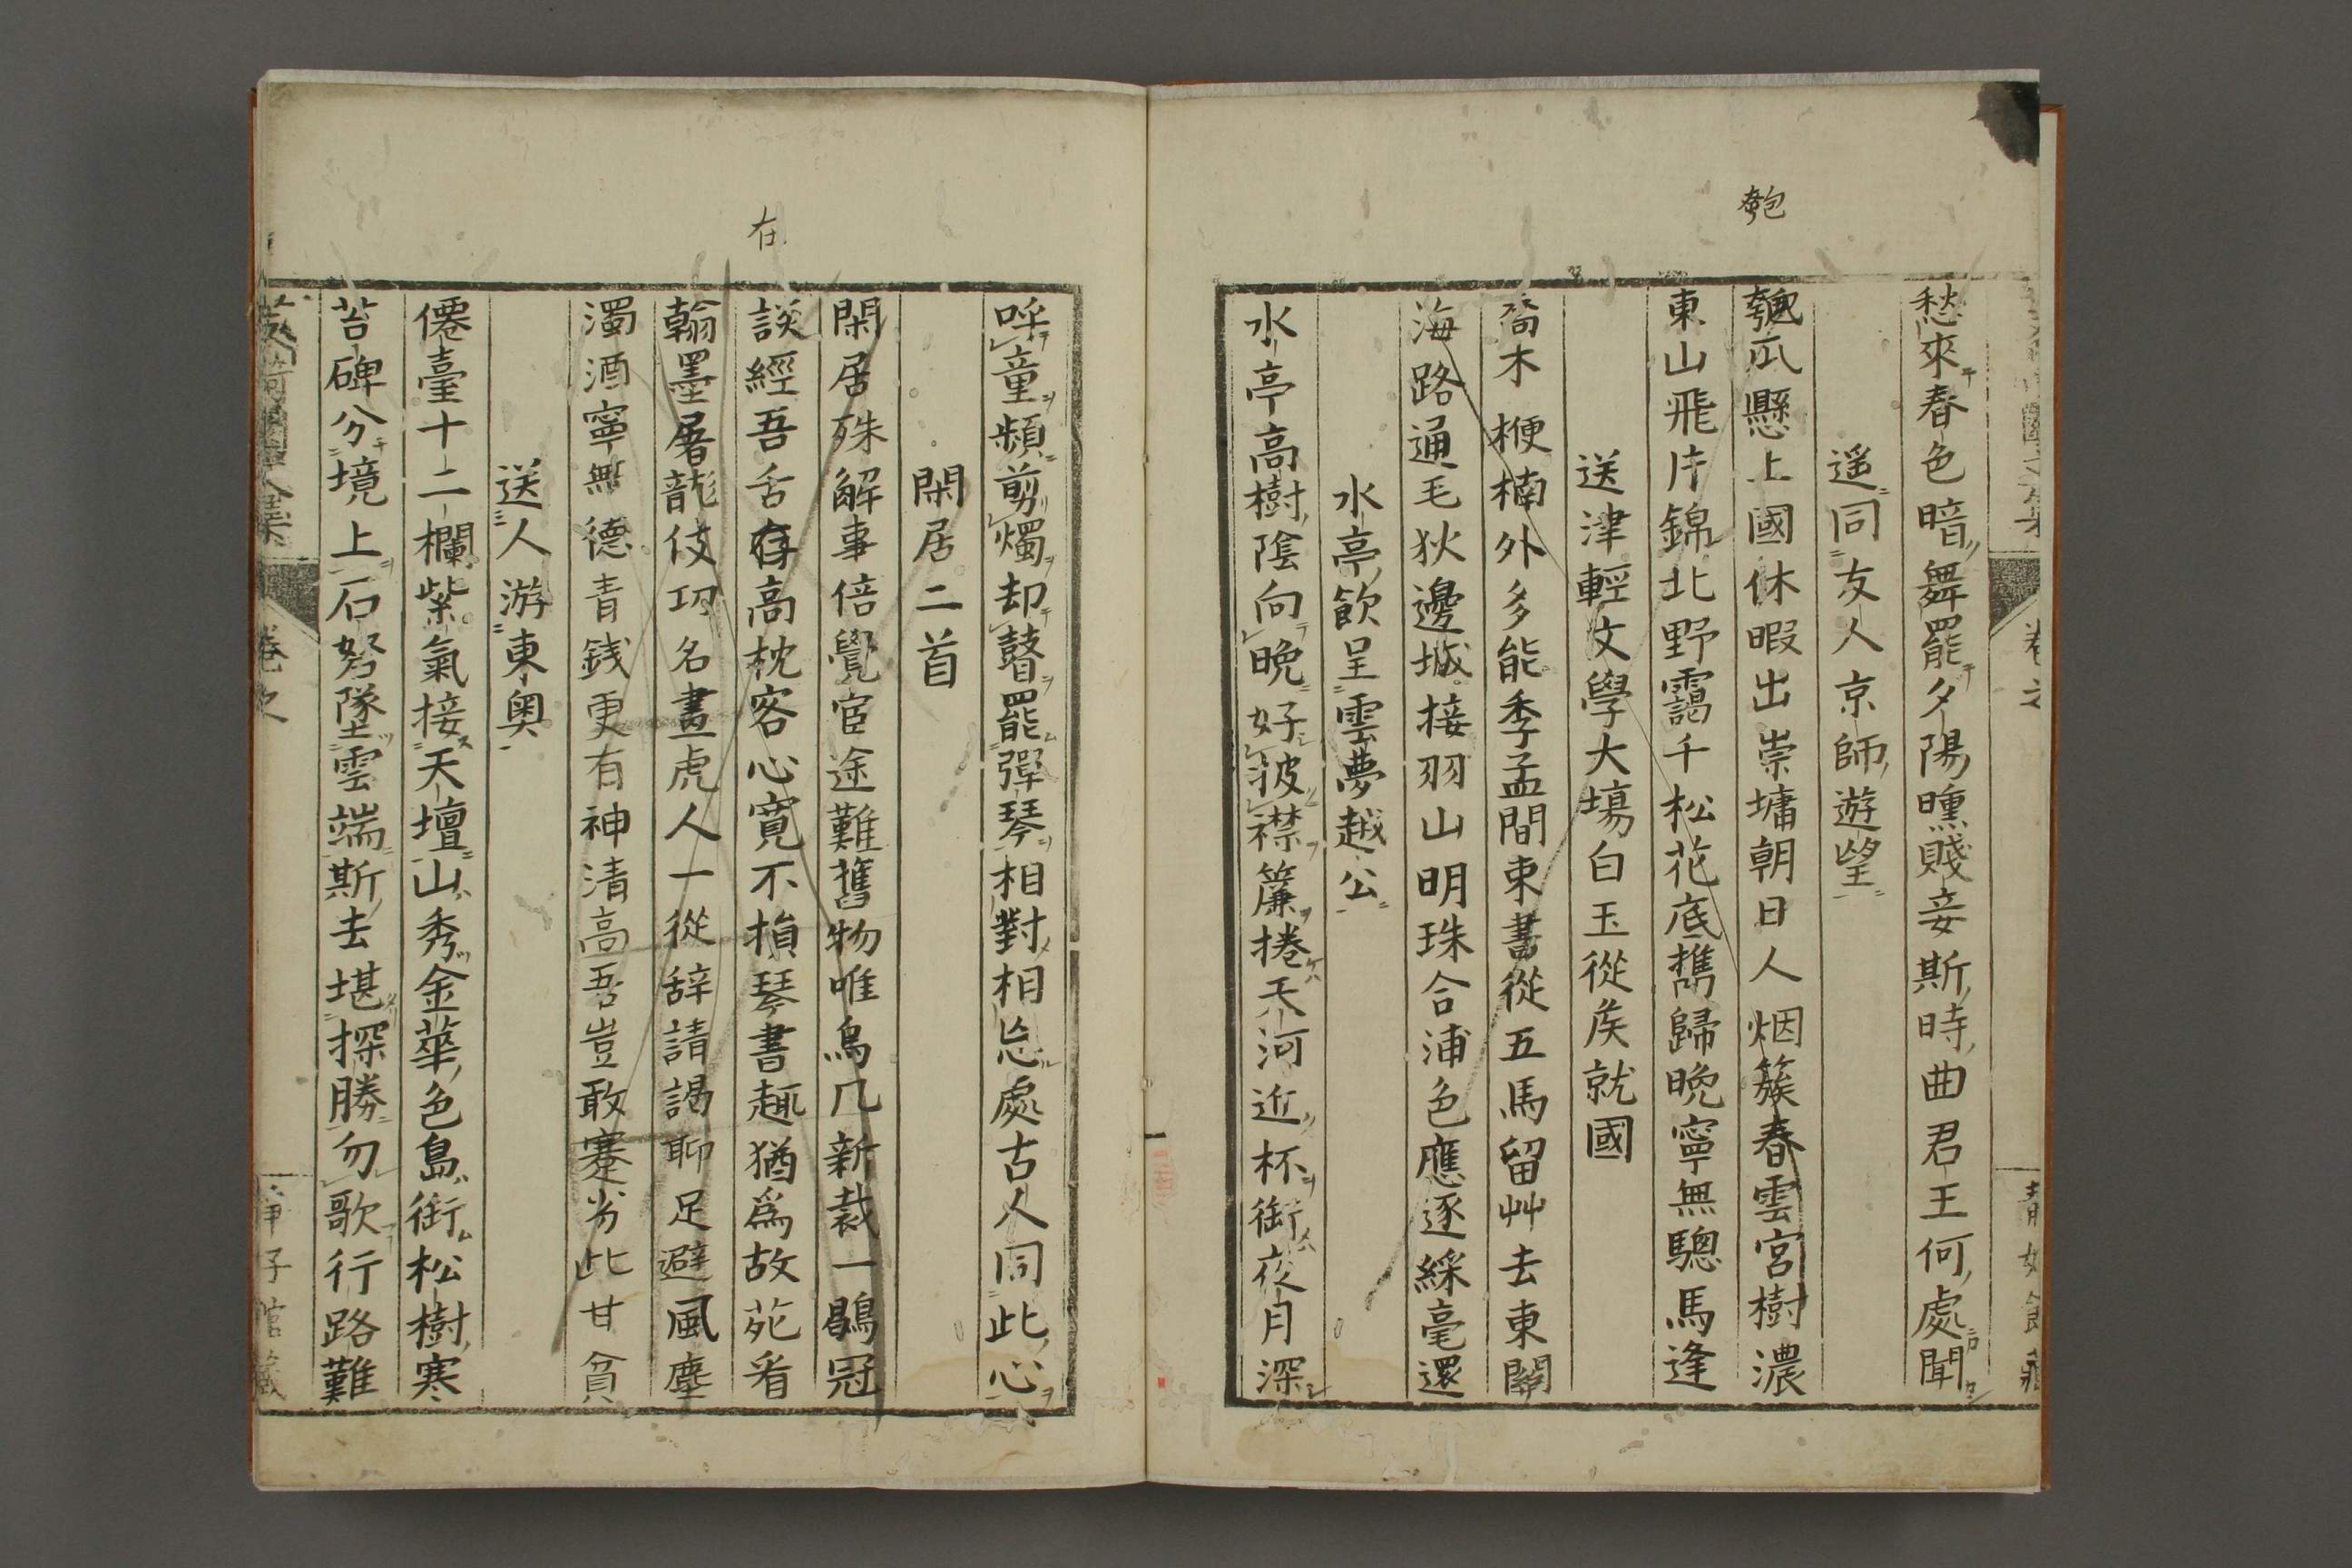 匏
愁來春色暗舞罷夕陽曛賤妾斯時曲君王何處聞
遥同友人京師遊望
瓠瓜懸上國休暇出崇墉朝日人烟簇春雲宮樹濃
東山飛片錦北野靄千松花底携歸晩寧無驄馬逢
送津輕文學大塲白玉從矦就國
喬木楩楠外多能季孟間東書從五馬留艸去東關
海路通毛狄邊城接羽山明珠合浦色應逐綵毫還
水亭飲呈雲夢越公
水亭高樹陰向晩好披襟簾捲天河近杯銜夜月深
在
呼童頻剪燭却瞽罷彈琴相對相忘處古人同此心
閑居二首
閑居殊解事倍覺宦途難舊物唯烏几新裁一鶡冠
談經吾舌存高枕客心寛不損琴書趣猶爲故苑看
翰墨屠龍伎功名畫虎人一從辞請謁聊足避風塵
濁酒寧無德青錢更有神清高吾豈敢蹇劣此甘貧
送人游東奥
僊臺十二欄紫氣接天壇山秀金華色島銜松樹寒
苔碑分境上石弩墜雲端斯去堪探勝勿歌行路難